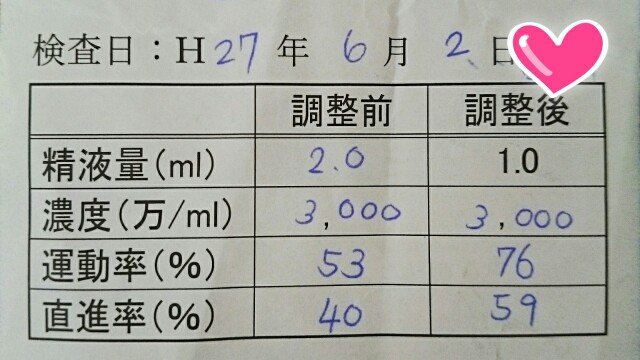 検査日：H27年 6月 2日
調整前 調整後
精液量(ml) 2.0 1.0
濃度(万/ml) 3,000 3,000
運動率(%) 53 76
直進率(%) 40 59